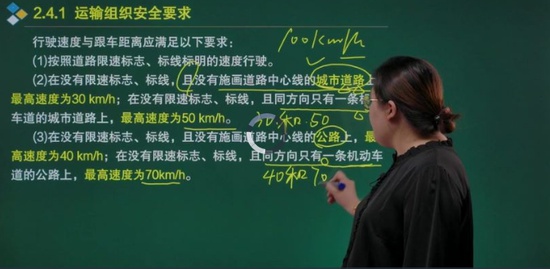 2.4.1 运输组织安全要求
100km/h
行驶速度与跟车距离应满足以下要求：
(1)按照道路限速标志、标线标明的速度行驶。
(2)在没有限速标志、标线，且没有施画道路中心线的城市道路上
最高速度为30 km/h；在没有限速标志、标线，且同方向只有一条
车道的城市道路上，最高速度为50 km/h。
30和50
(3)在没有限速标志、标线，且没有施画道路中心线的公路上，最
高速度为40 km/h；在没有限速标志、标线，且同方向只有一条机动车
道的公路上，最高速度为70km/h。
40和70